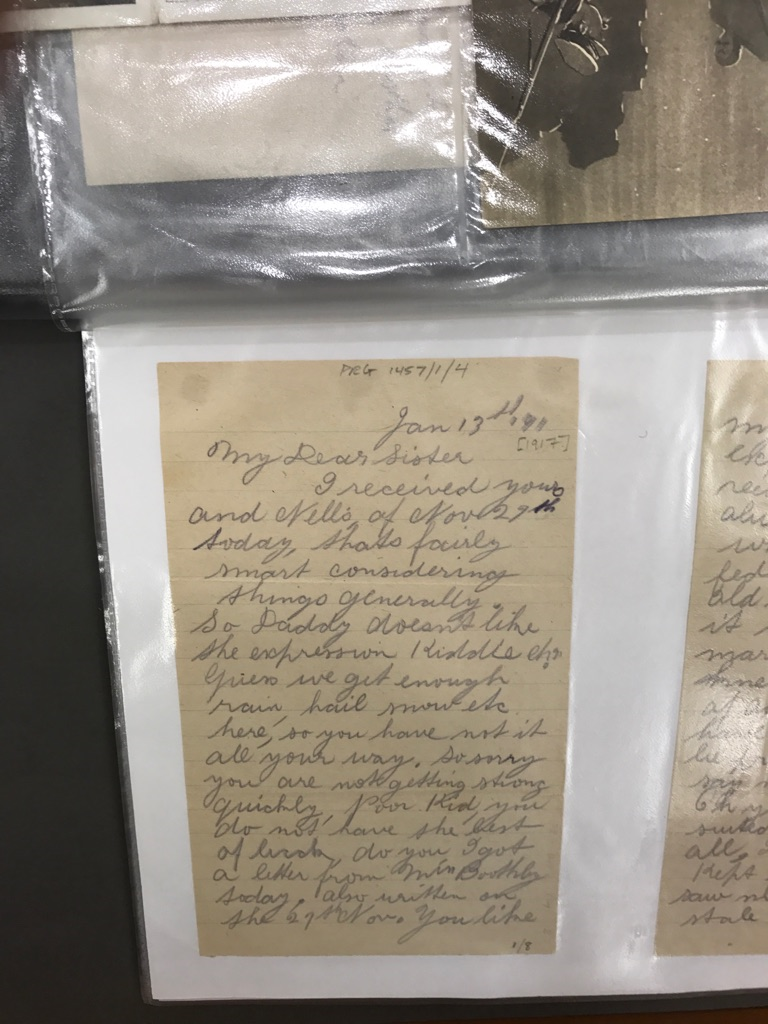 PRG 1457/1/4
Jan 13th
[1917]
My Dear Sister
I received yours
and Nell's of Nov 29th
today, thats fairly
smart considering
things generally.
So Daddy doesn't like
the expression Kiddle eh?
Guess we get enough
rain, hail snow etc
here, so you have not it
all your way, so sorry
you are not getting strong
quickly, Poor Kid, you
do not have the best
of luck, do you I got
a letter from Miss Boothby
today, also written on
the 29th Nov. You like
1/8
it
mar
at
have
be
say
all,
Kept
saw
stale